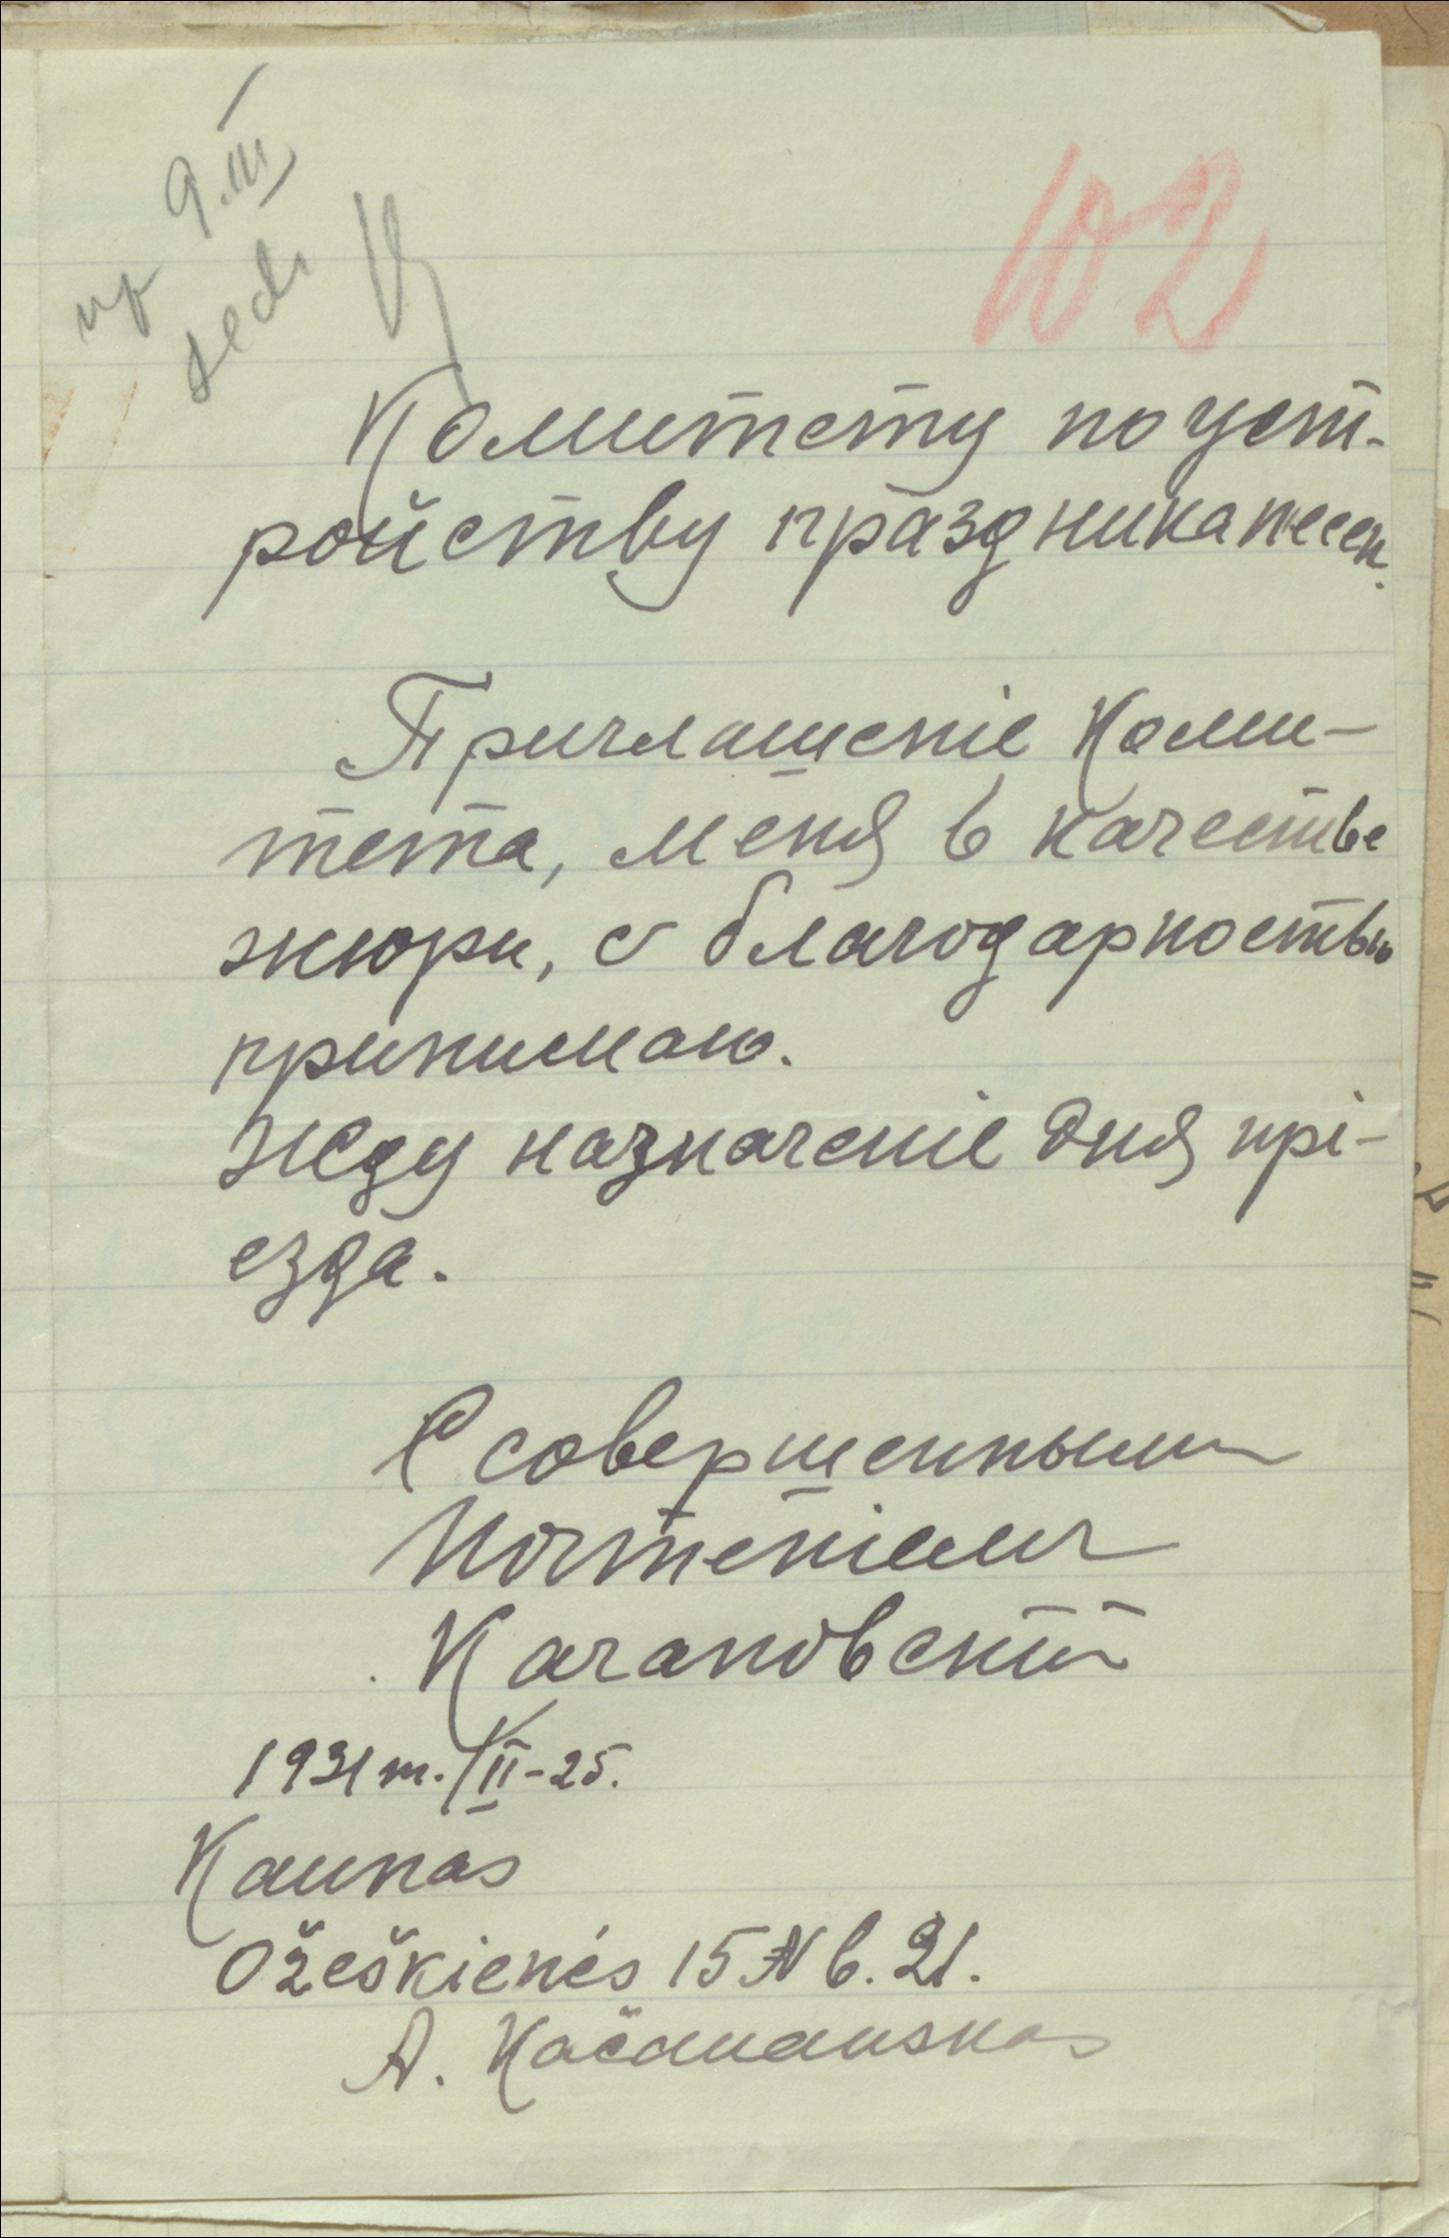 9.III
102
Комитету по уст-
ройству праздника песен.
Приглашеніе Коми-
тета, меня в качестве
жюри, с благодарностью
принимаю.
Жду назначеніе дня прі-
езда.
С совершенным
Почтеніем
Качановский
1931 m. II-25.
Kaunas
Ožeškienės 15 N b. 21.
A. Kačanauskas